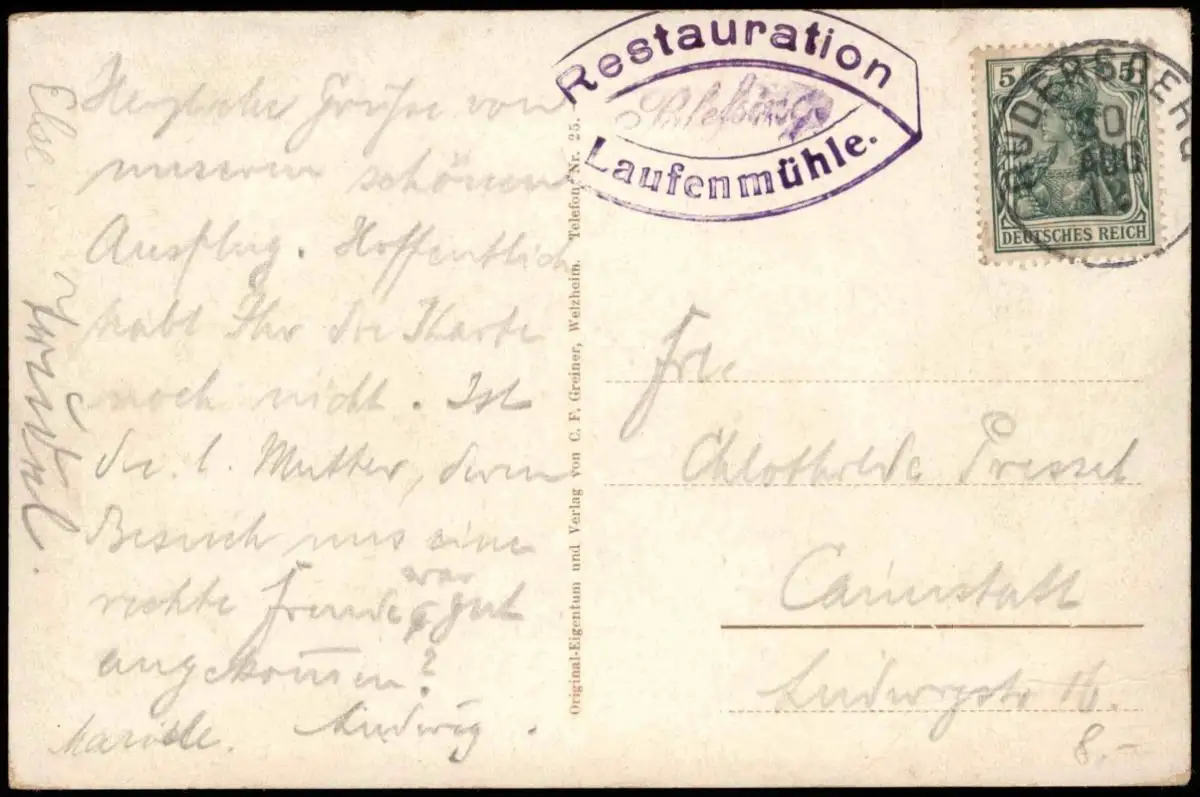 Herzliche Grüße von
unserem schönen
Ausflug. Hoffentlich
habt Ihr die Karte
noch nicht. Ist
die l. Mutter, deren
Besuch uns eine
rechte Freude war, gut
angekommen?
Ludwig.
Else.
Restauration
Laufenmühle.
5 5
DEUTSCHES REICH
RUDERSBERG
AUG
Original-Eigentum und Verlag von C. F. Greiner, Welzheim. Telefon Nr. 25.
Frl.
Chlothilde Pressel
Cannstatt
Ludwigstr 16.
8.-